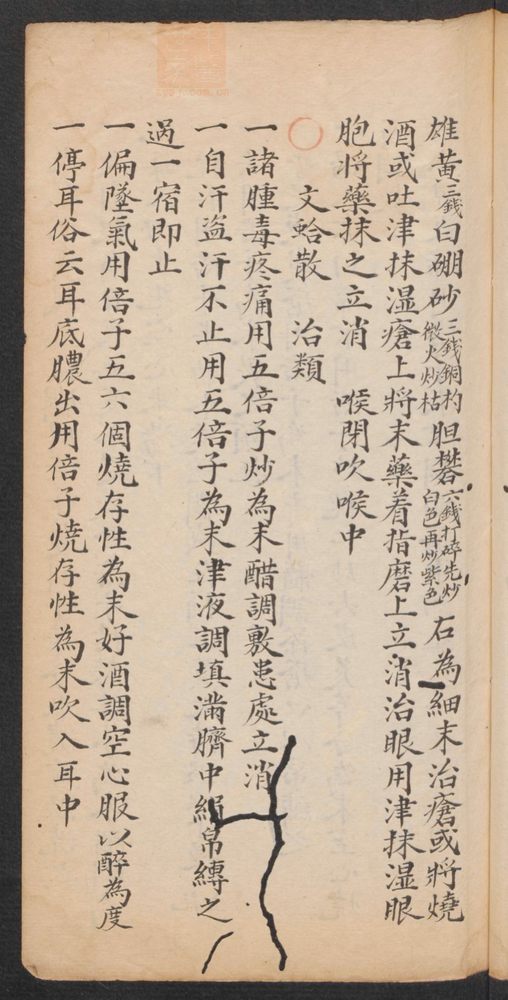 雄黄三錢白硼砂三錢銅杓微火炒枯胆礬六錢打碎先炒白色再炒紫色右為細末治瘡或將燒
酒或吐津抹湿瘡上將末藥着指磨上立消治眼用津抹湿眼
胞將藥抹之立消 喉閉吹喉中
○ 文蛤散 治類
一諸腫毒疼痛用五倍子炒為末醋調敷患處立消
一自汗盗汗不止用五倍子為末津液調填滿臍中絹帛縛之
過一宿即止
一偏墜氣用倍子五六個燒存性為末好酒調空心服以醉為度
一停耳俗云耳底膿出用倍子燒存性為末吹入耳中